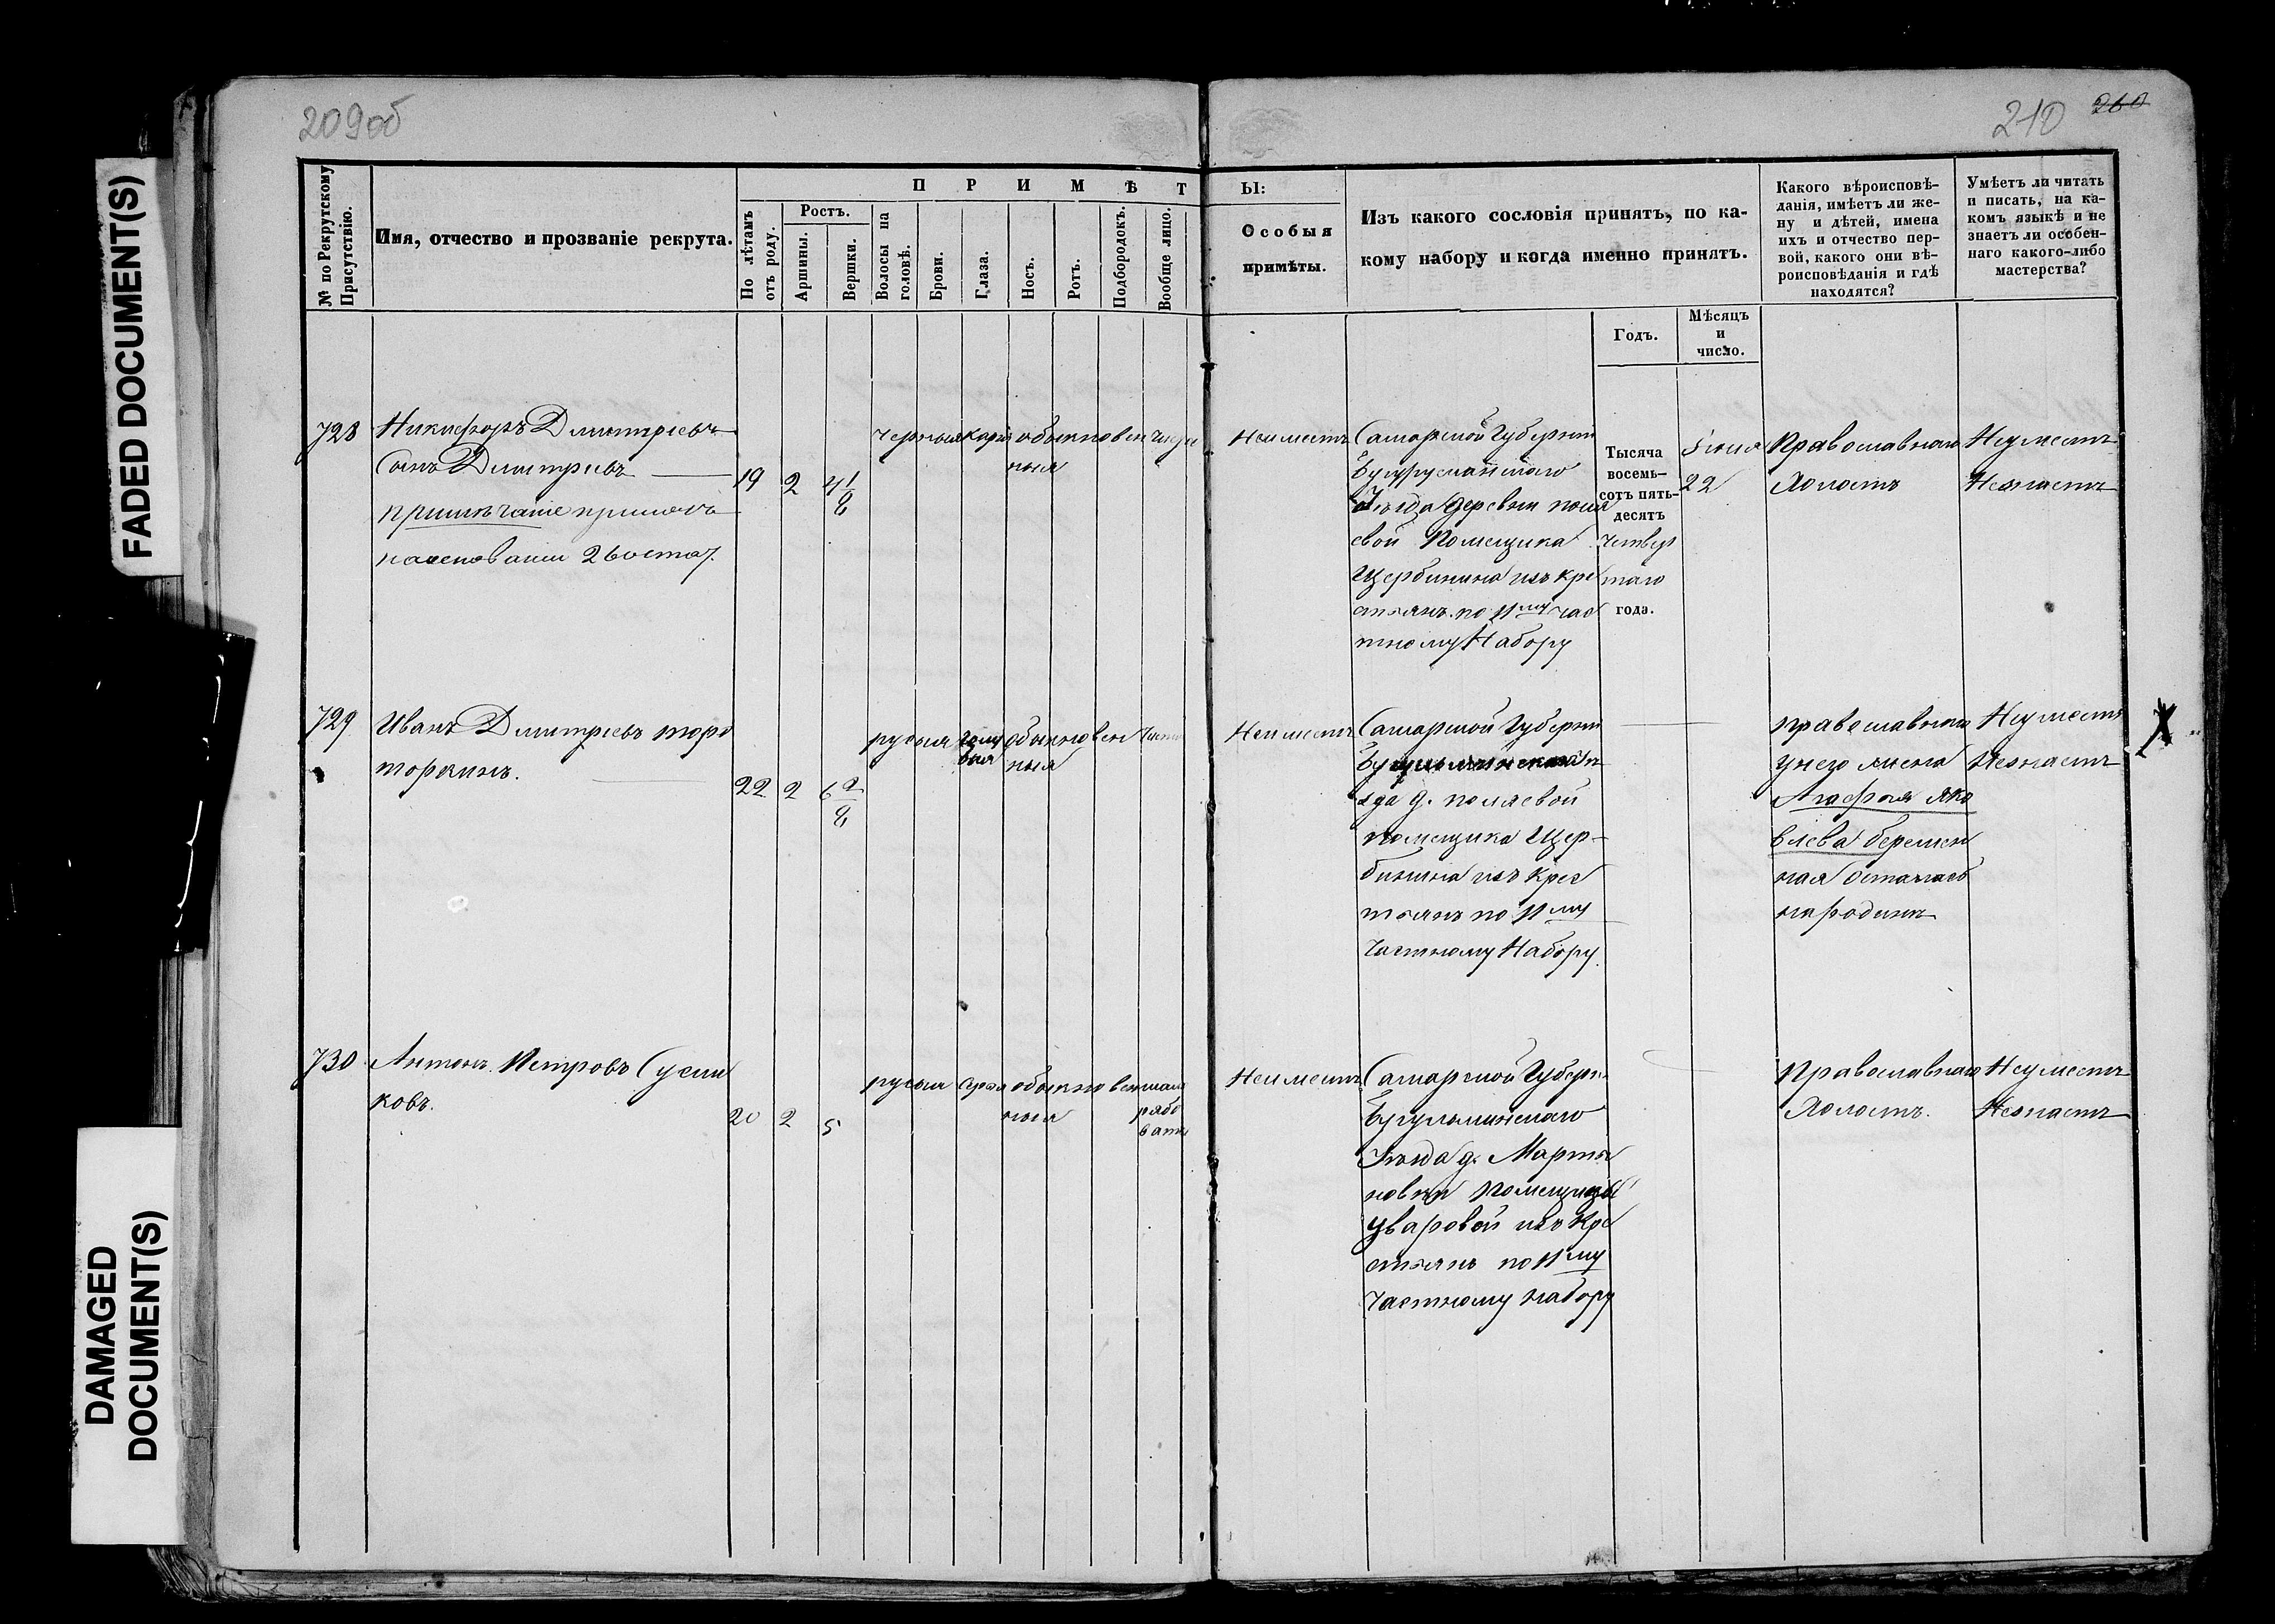 FADED DOCUMENT(S)
DAMAGED
DOCUMENT(S)
209об
210 260
№ по Рекрутскому
Присутствію.
Имя, отчество и прозваніе рекрута.
П Р И М Ѣ Т Ы:
По лѣтамъ
отъ роду.
Ростъ.
Аршины.
Вершки.
Волосы на
головѣ.
Брови.
Глаза.
Носъ.
Ротъ.
Подбородокъ.
Вообще лицо.
Особыя
примѣты.
Изъ какого сословія принятъ, по ка-
кому набору и когда именно принятъ.
Годъ.
Мѣсяцъ
и
число.
Какого вѣроисповѣ-
данія, имѣетъ ли же-
ну и дѣтей, имена
ихъ и отчество пер-
вой, какого они вѣ-
роисповѣданія и гдѣ
находятся?
Умѣетъ ли читать
и писать, на ка-
комъ языкѣ и не
знаетъ ли особен-
наго какого-либо
мастерства?
728
Никифоръ Дмитріевъ
сынъ Дмитріевъ
примѣчаніе принятъ
на основаніи 26 стат.
19
2
4 1/8
черныя
карія
обыкновен
ныя
чистое
Неимеетъ
Самарской Губерніи
Бугурусланскаго
Уѣзда деревни поля
евой Помещика
Щербинина изъ кре
стьянъ по 11му час
тному Набору
Тысяча
восемь-
сотъ пять-
десятъ
четвер
таго
года.
Іюня
22
Православнаго
Холостъ
Неумеетъ
Незнаетъ
729
Иванъ Дмитріевъ торо
торкинъ.
22
2
6 2/8
русыя
голу
быя
обыкновен
ныя
Чистое
Неимеетъ
Самарской Губерніи
Бугульминскаго уѣ
зда д. поляевой
помещика Щер-
бинина изъ крес
тьянъ по 11му
Частному Набору.
православнаго
унего жена
Агафья Яко
влева беремен
ная осталась
народинѣ
Неумеетъ
Незнаетъ
730
Антонъ Петровъ Сусли
ковъ.
20
2
5
русыя
серыя
обыкновен
ныя
мало
рябо
ватое
Неимеетъ
Самарской Губерн.
Бугульминскаго
Уѣзда д. Марты
новки Помещицы
Уваровой изъ Кре
стьянъ по 11му
Частному набору
Православнаго
Холостъ.
Неумеетъ
Незнаетъ